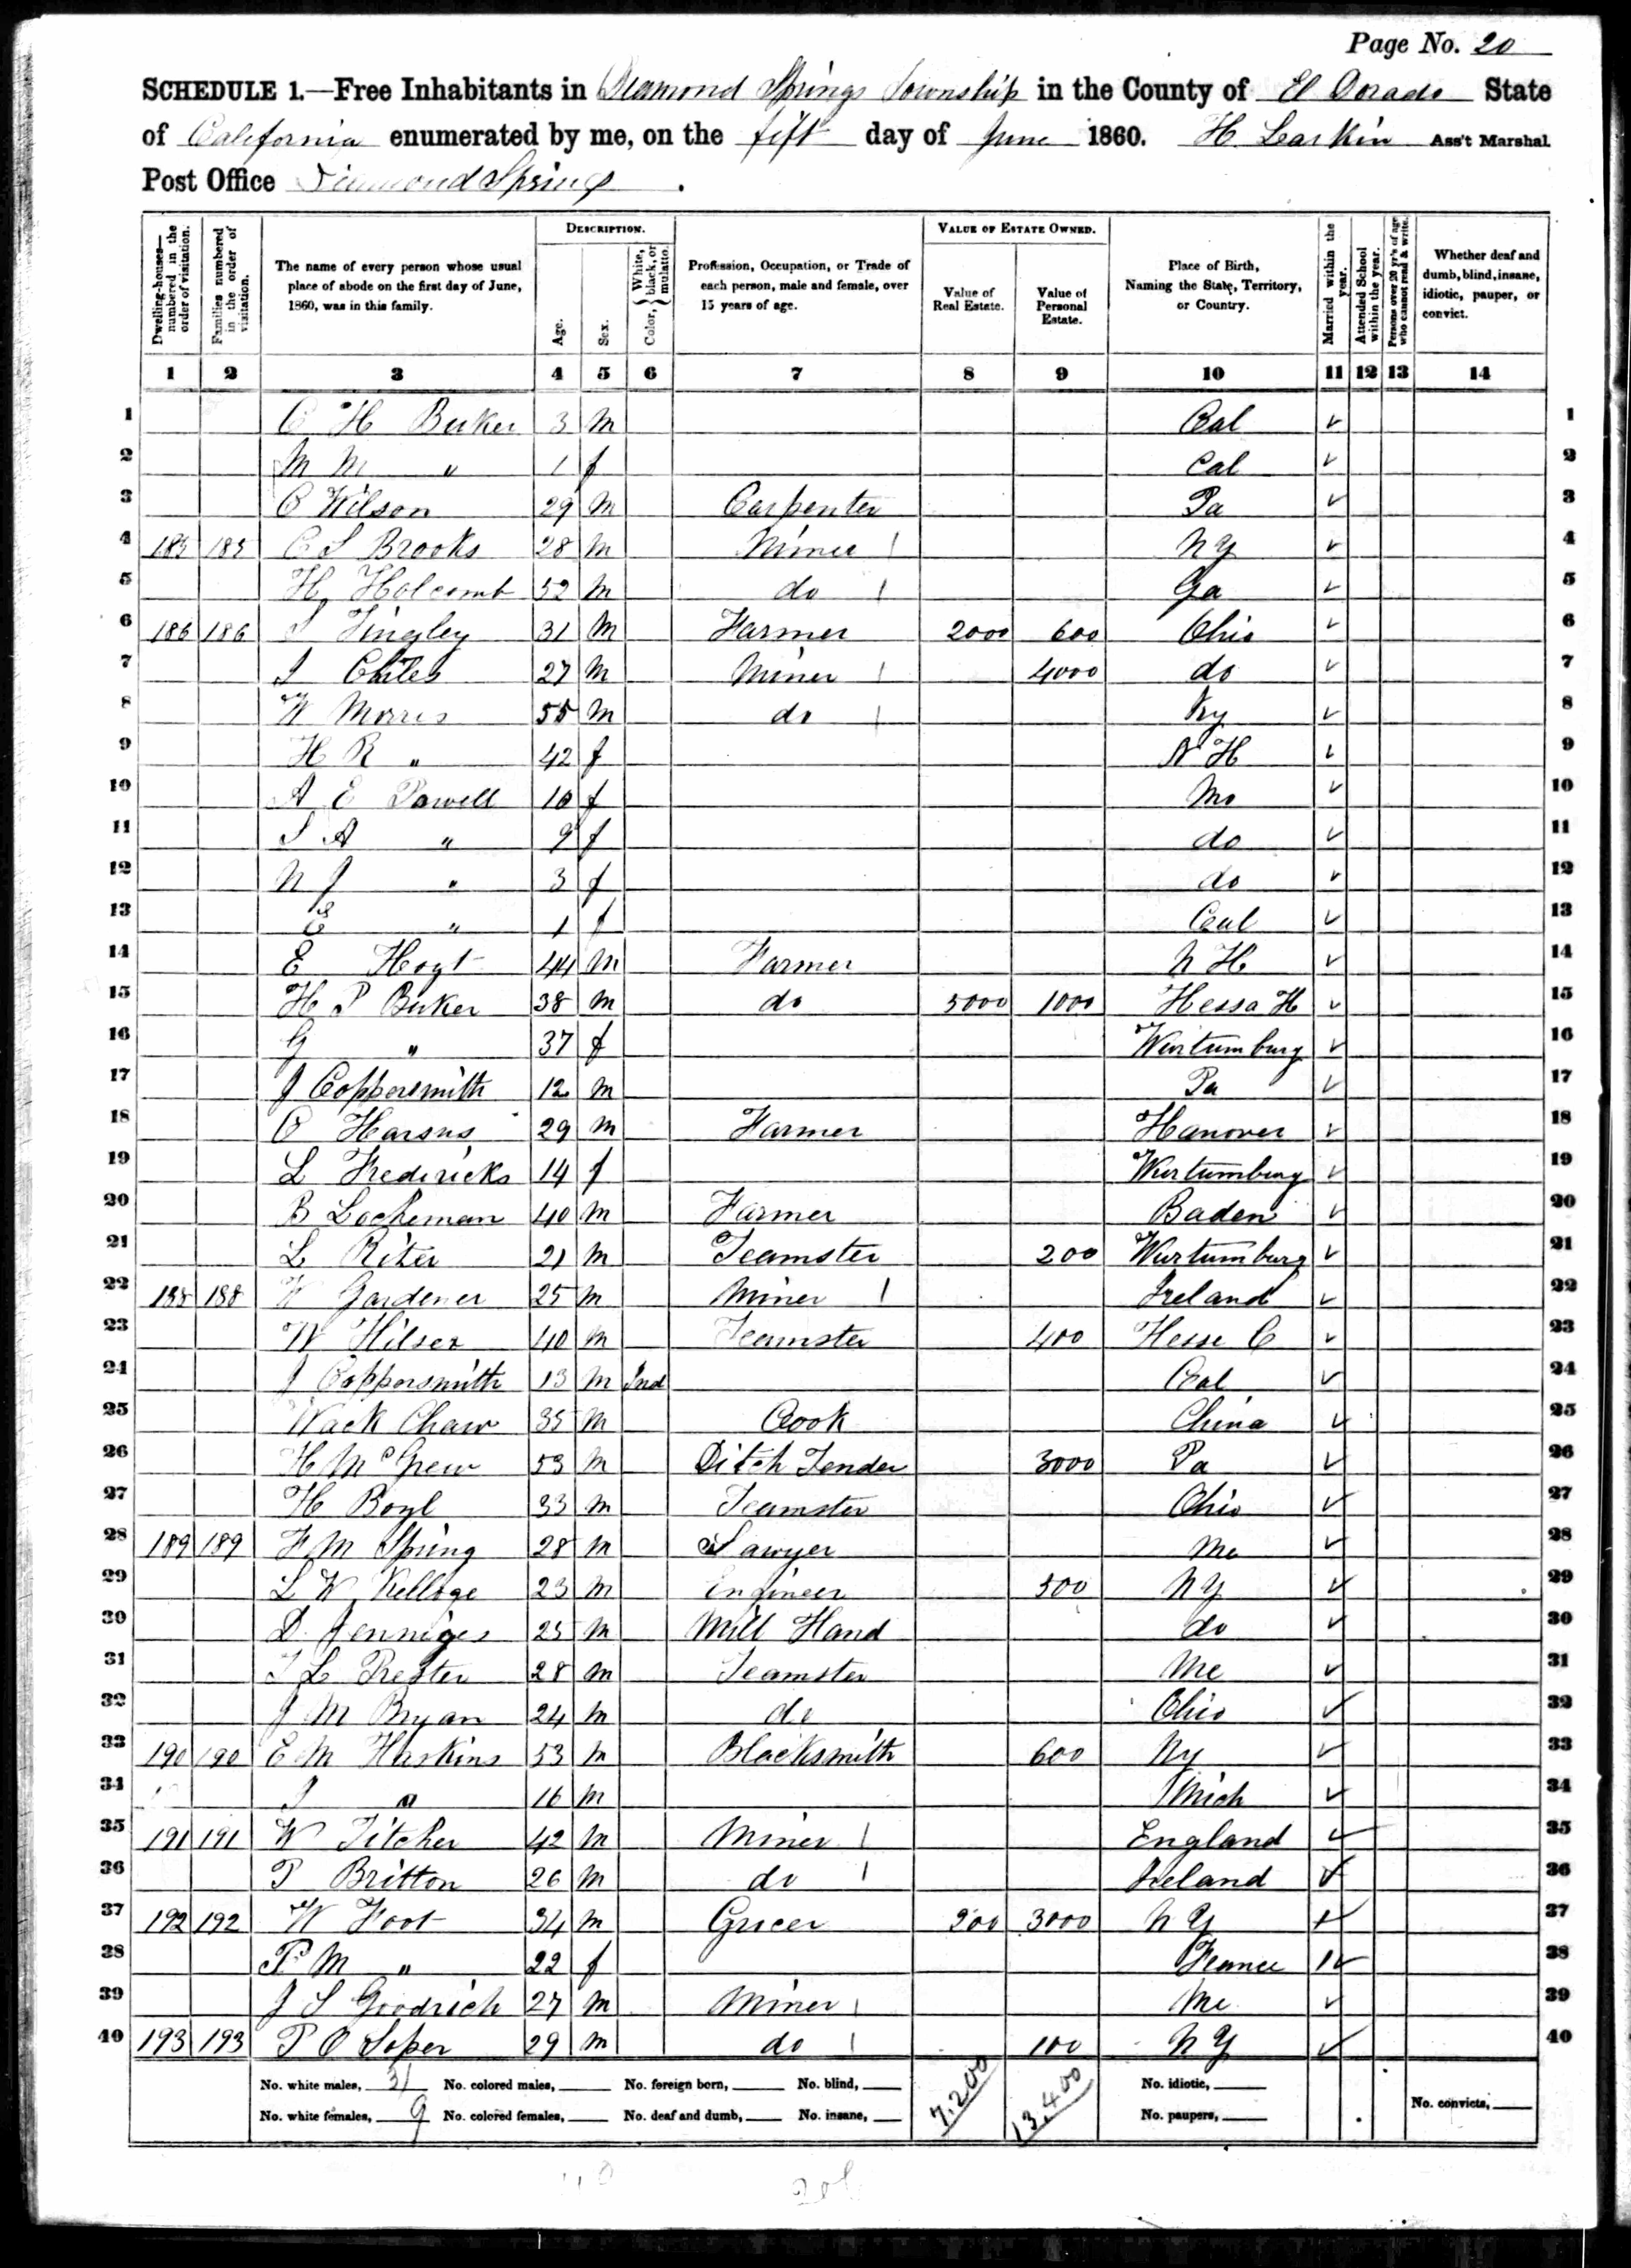 Page No. 20
SCHEDULE 1.—Free Inhabitants in Diamond Springs Township in the County of El Dorado State
of California enumerated by me, on the fift day of June 1860. H Larkin Ass't Marshal
Post Office Diamond Springs.
Dwelling-houses—numbered in the order of visitation. Families numbered in the order of visitation. The name of every person whose usual place of abode on the first day of June, 1860, was in this family. DESCRIPTION. Age. Sex. Color, { White, black, or mulatto. Profession, Occupation, or Trade of each person, male and female, over 15 years of age. VALUE OF ESTATE OWNED. Value of Real Estate. Value of Personal Estate. Place of Birth, Naming the State, Territory, or Country. Married within the year. Attended School within the year. Persons over 20 y'rs of age who cannot read & write. Whether deaf and dumb, blind, insane, idiotic, pauper, or convict.
1 2 3 4 5 6 7 8 9 10 11 12 13 14
1 C H Buker 3 m Cal 1
2 M M " 1 f Cal 2
3 C Wilson 29 m Carpenter Pa 3
4 185 185 C S Brooks 28 m Miner N Y 4
5 H Holcomb 52 m do Ga 5
6 186 186 Tingley 31 m Farmer 2000 600 Ohio 6
7 J Chiles 27 m Miner 4000 do 7
8 W Morris 55 m do Ky 8
9 H R " 42 f N H 9
10 A E Powell 10 f Mo 10
11 S A " 9 f do 11
12 N J " 3 f do 12
13 E " 1 f Cal 13
14 E Hoyt 44 m Farmer N H 14
15 H P Buker 38 m do 5000 1000 Hessa H 15
16 G " 37 f Wurtumburg 16
17 J Coppersmith 12 m Pa 17
18 O Harsus 29 m Farmer Hanover 18
19 L Fredericks 14 f Wurtumburg 19
20 B Locheman 40 m Farmer Baden 20
21 L Riter 21 m Teamster 200 Wurtumburg 21
22 188 188 W Gardener 25 m Miner Ireland 22
23 W Hilser 40 m Teamster 400 Hesse C 23
24 J Coppersmith 13 m Ind Cal 24
25 Wack Chaw 35 m Cook China 25
26 H McGrew 53 m Ditch Tender 3000 Pa 26
27 H Boyl 33 m Teamster Ohio 27
28 189 189 F M Spring 28 m Sawyer Me 28
29 L W Kelloge 23 m Engineer 500 N Y 29
30 D Jenniges 25 m Mill Hand do 30
31 J L Prester 28 m Teamster Me 31
32 J M Bryan 24 m do Ohio 32
33 190 190 E M Haskins 53 m Blacksmith 600 Ny 33
34 J " 16 m Mich 34
35 191 191 W Titcher 42 m Miner England 35
36 P Britton 26 m do Ireland 36
37 192 192 W Foot 34 m Grocer 200 3000 N Y 37
38 P M " 22 f France 38
39 J S Goodrich 27 m Miner Me 39
40 193 193 P O Soper 29 m do 100 N Y 40
No. white males, 31 No. colored males, No. foreign born, No. blind, 7.200 13.400 No. idiotic,
No. white females, 9 No. colored females, No. deaf and dumb, No. insane, No. paupers, No. convicts,